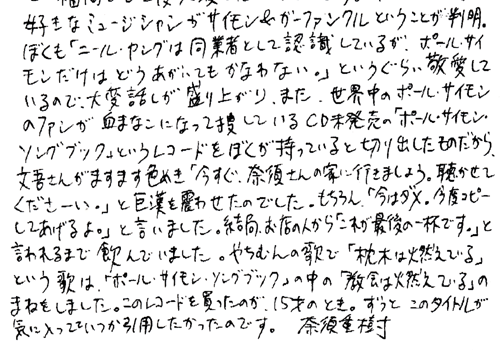 好きなミュージシャンがサイモン&ガーファンクルということが判明。
ぼくも「ニール・ヤングは同業者として認識しているが、ポール・サイ
モンだけはどうあがいてもかなわない。」というぐらい敬愛して
いるので、大変話しが盛り上がり、また、世界中のポール・サイモン
のファンが血まなこになって捜しているCD未発売の「ポール・サイモン・
ソングブック」というレコードをぼくが持っていると切り出したものだから、
文吾さんがますます色めき「今すぐ、奈須さんの家に行きましょう。聴かせて
くださーい。」と巨漢を震わせたのでした。もちろん、「今はダメ。今度コピー
してあげるよ。」と言いました。結局、お店の人から「これが最後の一杯です。」と
言われるまで飲んでいました。やちむんの歌で「枕木は燃えている」
という歌は、「ポール・サイモン・ソングブック」の中の「教会は燃えている」の
まねをしました。このレコードを買ったのが、15才のとき。ずっとこのタイトルが
気に入っていつか引用したかったのです。 奈須重樹